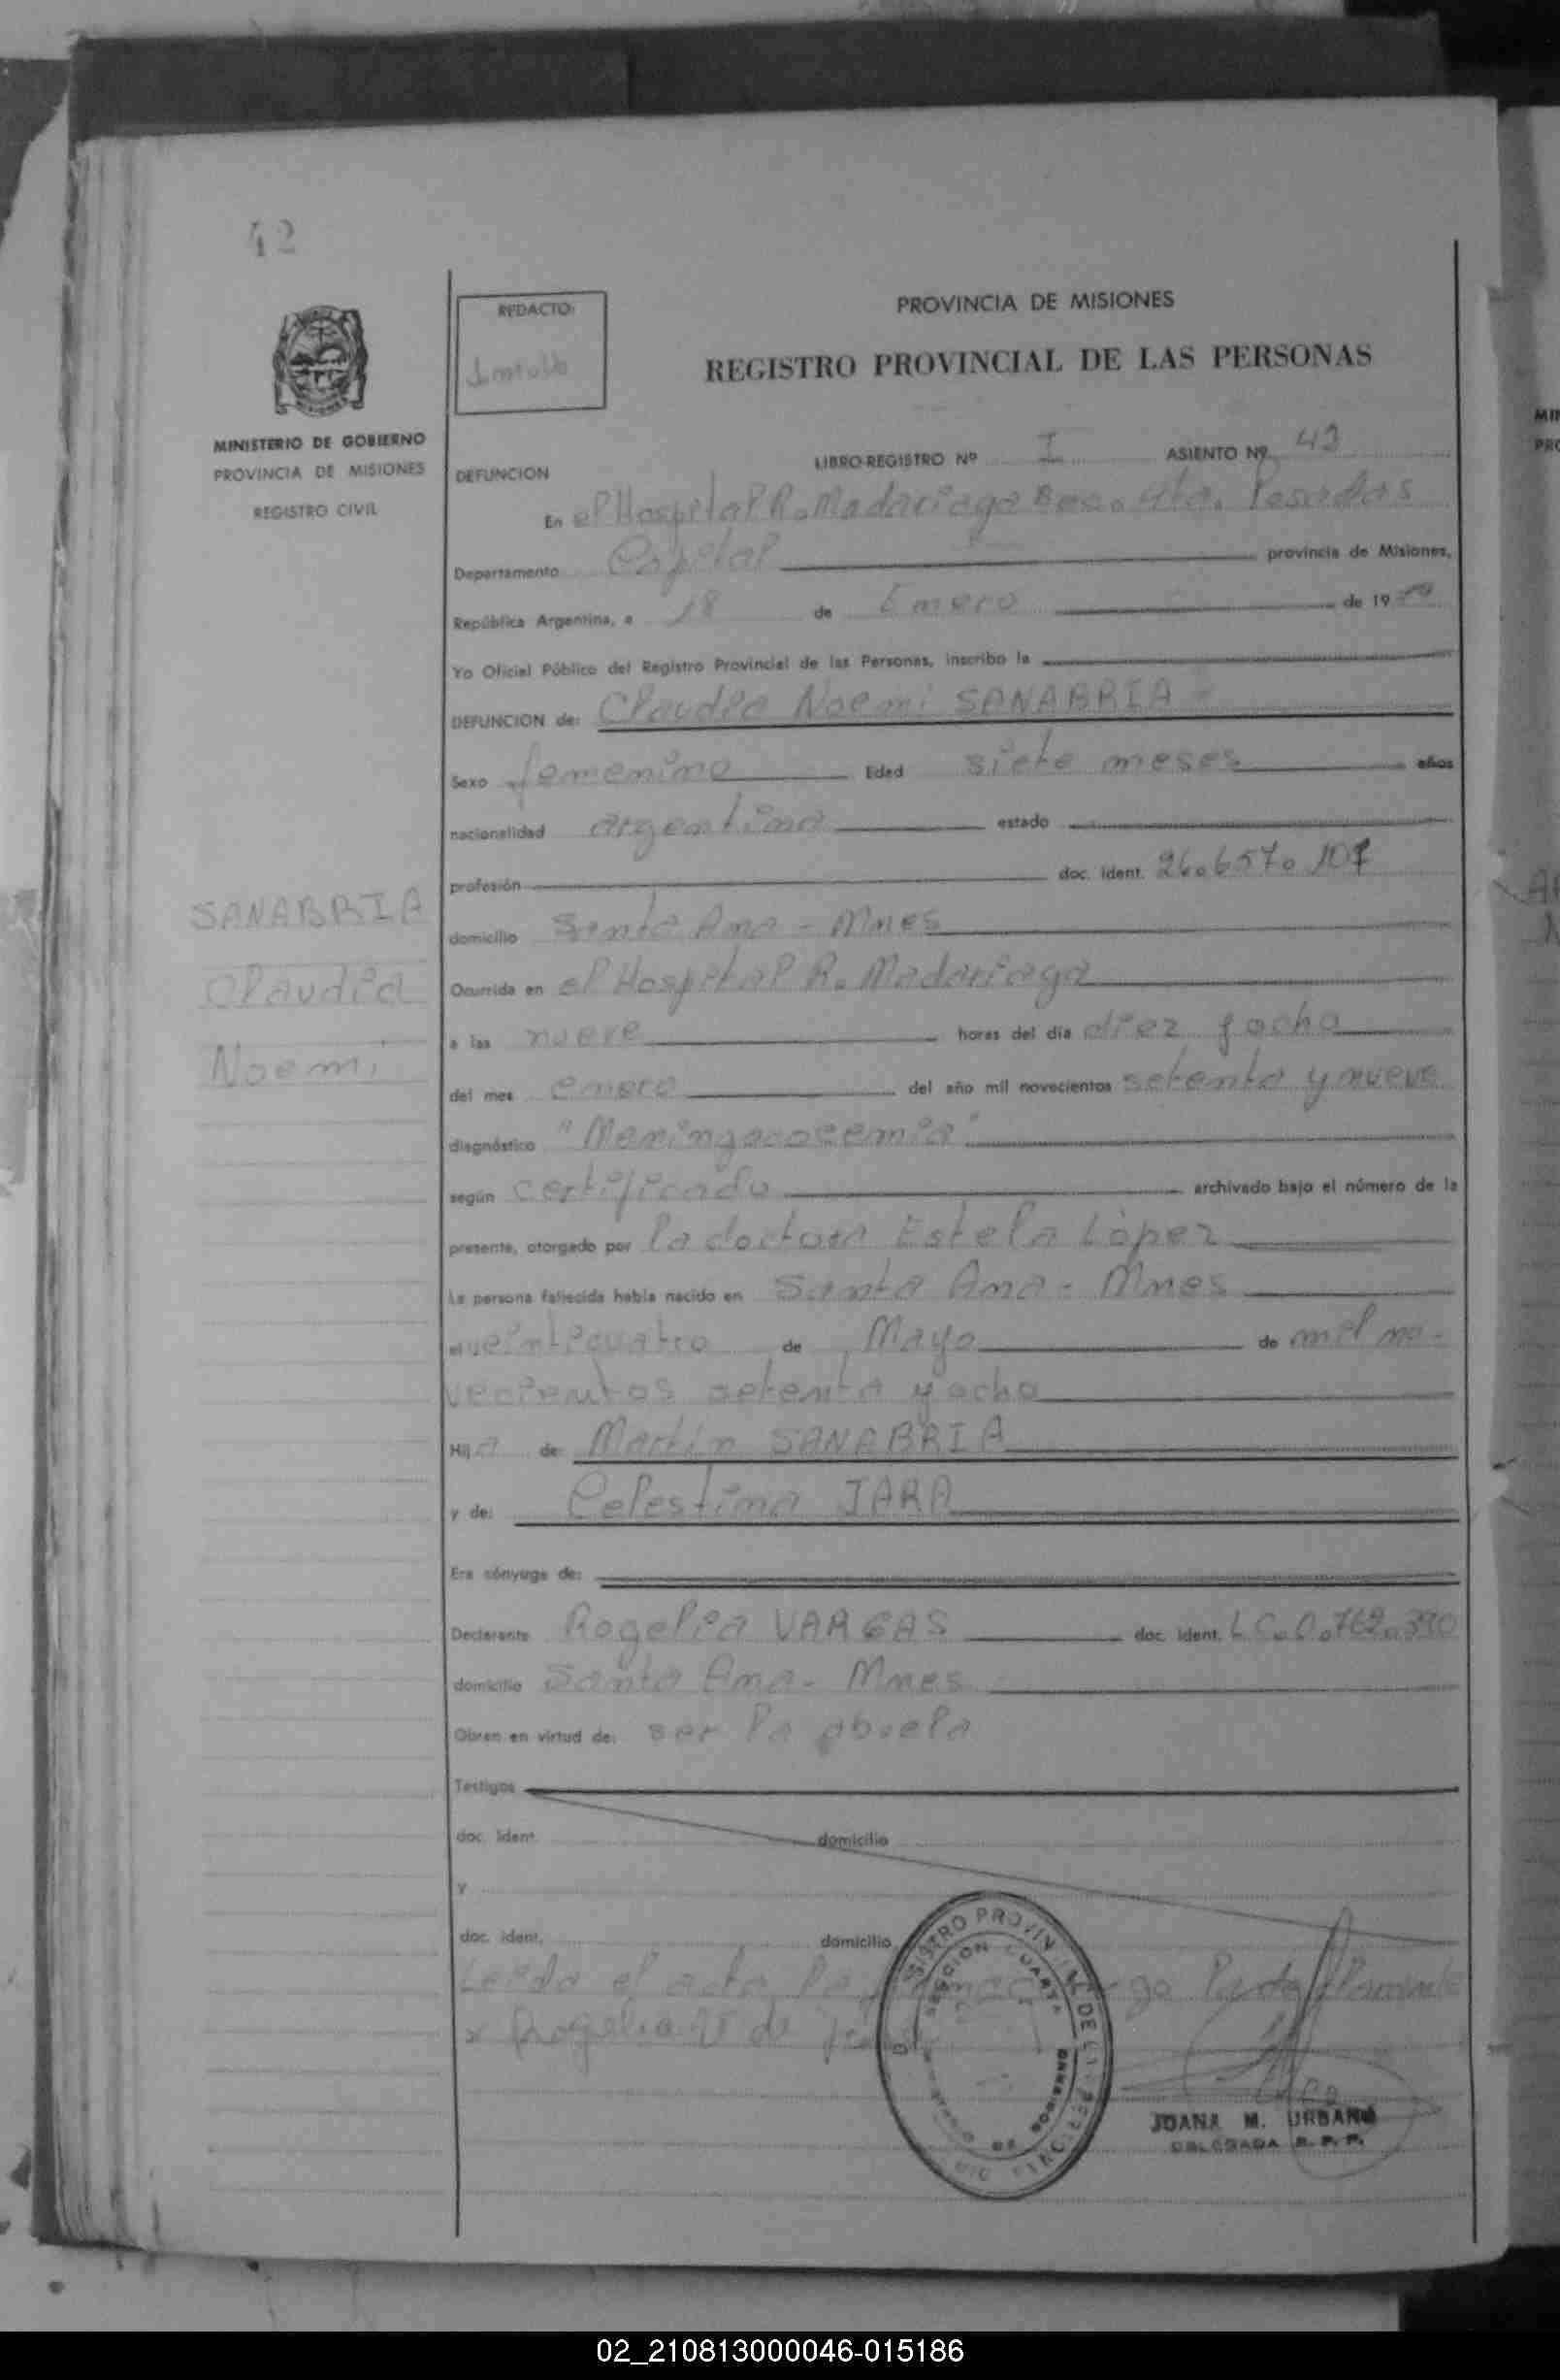 42
REDACTO:
PROVINCIA DE MISIONES
REGISTRO PROVINCIAL DE LAS PERSONAS
MINISTERIO DE GOBIERNO
PROVINCIA DE MISIONES
REGISTRO CIVIL
DEFUNCION LIBRO-REGISTRO Nº I ASIENTO Nº 43
En el Hospital R. Madariaga Secc. 4ta. Posadas
Departamento Capital provincia de Misiones,
República Argentina, a 18 de Enero de 19
Yo Oficial Público del Registro Provincial de las Personas, inscribo la
DEFUNCION de: Claudia Noemi SANABRIA
Sexo femenino Edad siete meses años
nacionalidad argentina estado
profesión doc. ident. 26.657.107
SANABRIA
Claudia
Noemi
domicilio Santa Ana - Mnes
Ocurrida en el Hospital R. Madariaga
a las nueve horas del día diez y ocho
del mes enero del año mil novecientos setenta y nueve
diagnóstico "Meningococemia"
según certificado archivado bajo el número de la
presente, otorgado por la doctora Estela López
La persona fallecida había nacido en Santa Ana - Mnes
el veinticuatro de Mayo de mil no-
vecientos setenta y ocho
Hija de: Martin SANABRIA
y de: Celestina JARA
Era cónyuge de:
Declarante Rogelia VARGAS doc. ident. L.C. 0.762.390
domicilio Santa Ana - Mnes
Obran en virtud de: ser la abuela
Testigos
doc. ident. domicilio
y
doc. ident. domicilio
Leida el acta la
x Rogelia V de
REGISTRO PROVINCIAL DE LAS PERSONAS
SECCION CUARTA
JOANA M. URBANO
DELEGADA R. P. P.
02_210813000046-015186